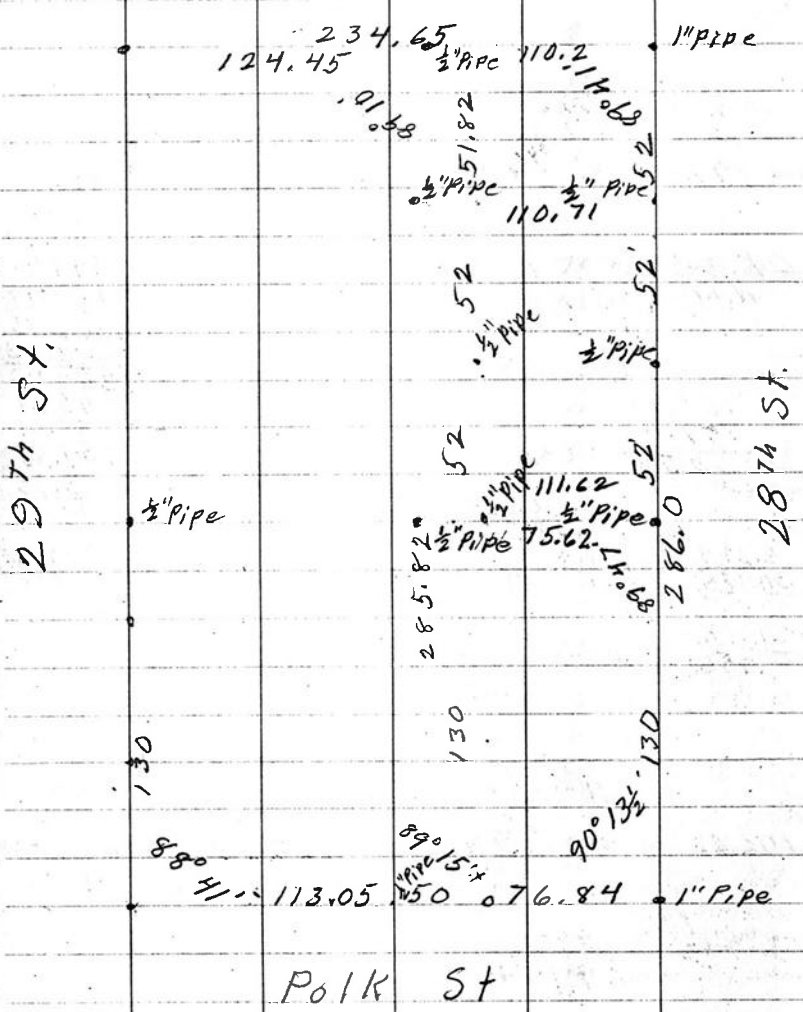 234.65
124.45
1/2" Pipe
110.2
1" Pipe
89° 10'
89° 41'
51.82
52
1/2" Pipe
1/2" Pipe
110.71
52
52'
1/2" Pipe
1/2" Pipe
29th St.
28th St.
52
52'
1/2" Pipe
111.62
1/2" Pipe
1/2" Pipe
1/2" Pipe
75.62
89° 47'
285.82
286.0
130
130
130
88° 41'
89° 15'
90° 13 1/2'
113.05
1/2" Pipe
50
76.84
1" Pipe
Polk St